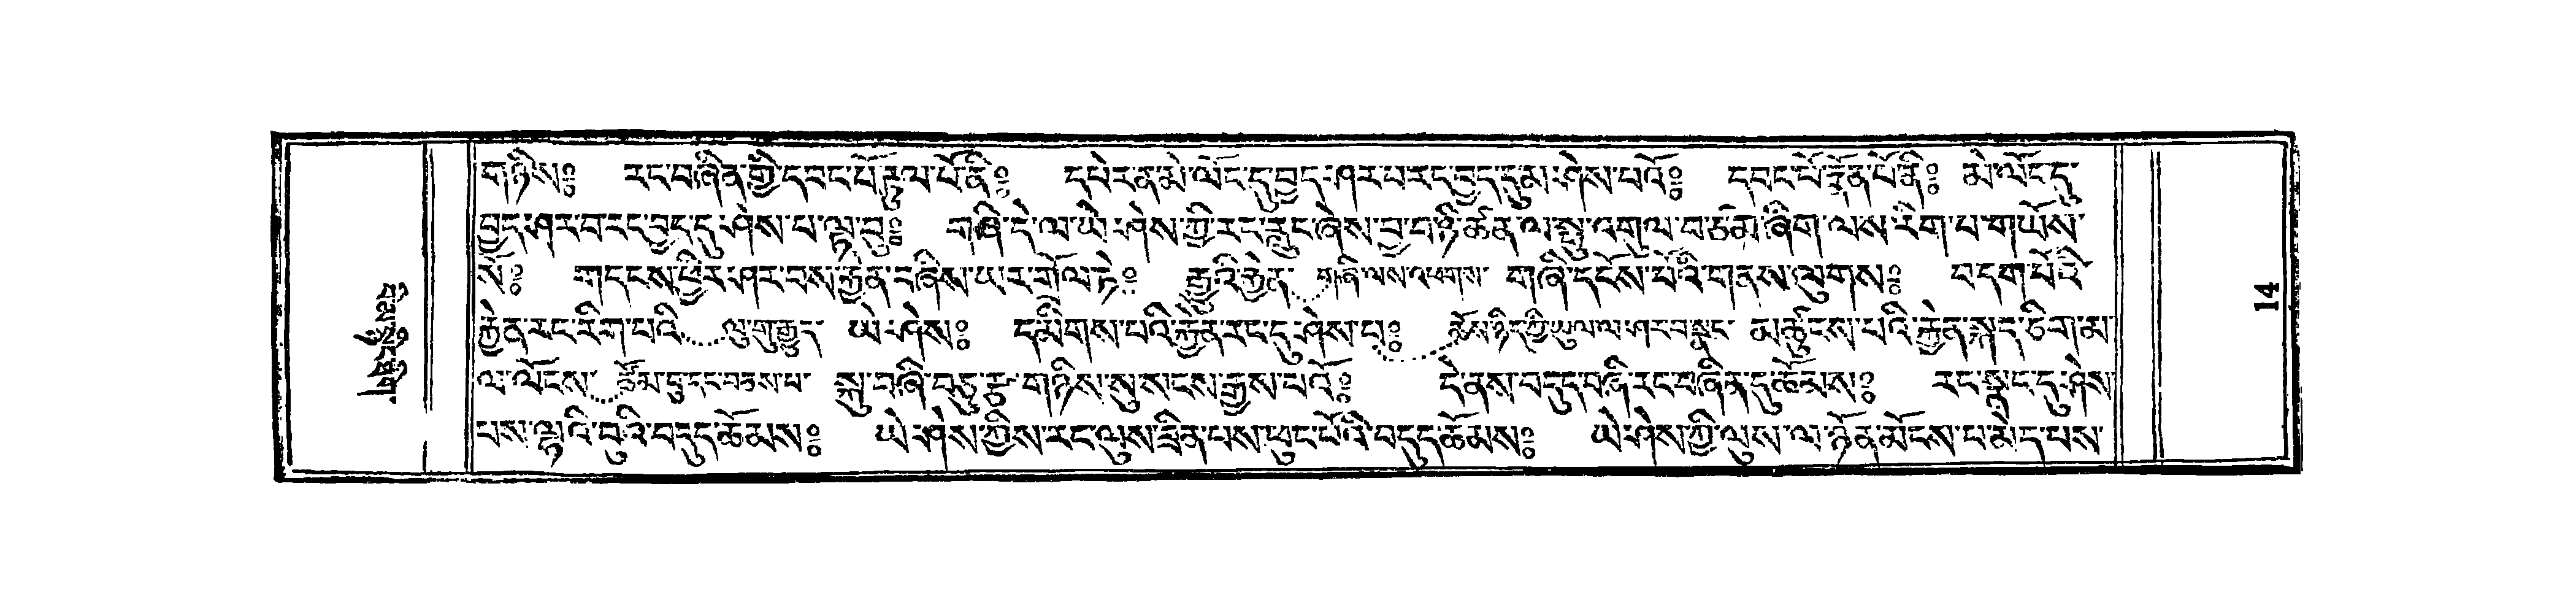 གཉིས༔ རང་བཞིན་གྱི་དབང་པོ་རྟུལ་པོ་ནི༔ དཔེར་ན་མེ་ལོང་དུ་བྱད་ཤར་བ་རང་བྱད་དུ་མ་ཤེས་པའོ༔ དབང་པོ་རྣོན་པོ་ནི༔ མེ་ལོང་དུ་
བྱད་ཤར་བ་རང་བྱད་དུ་ཤེས་པ་ལྟ་བུ༔ གཞི་དེ་ལ་ཡེ་ཤེས་ཀྱི་རང་རླུང་ཞེས་བྱ་བ་ཉི་ཚོན་ལ་སྤུ་འགུལ་བ་ཙམ་ཞིག་ལས་རིག་པ་གཡོས་
སོ༔ གདངས་ཕྱིར་ཤར་བས་རྐྱེན་བཞིས་ཡར་གྲོལ་ཏེ༔ རྒྱུའི་རྐྱེན་ གཞི་ལས་འཕགས་ གཞི་དངོས་པོའི་གནས་ལུགས༔ བདག་པོའི་
རྐྱེན་རང་རིག་པའི་ ལུ་གུ་རྒྱུད་ ཡེ་ཤེས༔ དམིགས་པའི་རྐྱེན་རང་དུ་ཤེས་པ༔ ཆོས་ཉིད་ཀྱི་ཡུལ་ལ་ཤར་བ་སྣང་ མཚུངས་པའི་རྐྱེན་སྐད་ཅིག་མ་
ལ་ལོངས་ ཚོམ་བུ་དང་བཅས་པ་ སྐུ་བཞི་བཅུ་རྩ་གཉིས་སུ་སངས་རྒྱས་པའོ༔ དེ་ནས་བདུད་བཞི་རང་བཞིན་དུ་ཆོམས༔ རང་སྣང་དུ་ཤེས་
པས་ལྷའི་བུའི་བདུད་ཆོམས༔ ཡེ་ཤེས་ཀྱིས་རང་ལུས་ཟིན་པས་ཕུང་པོའི་བདུད་ཆོམས༔ ཡེ་ཤེས་ཀྱི་ལུས་ལ་ཉོན་མོངས་པ་མེད་པས་
14